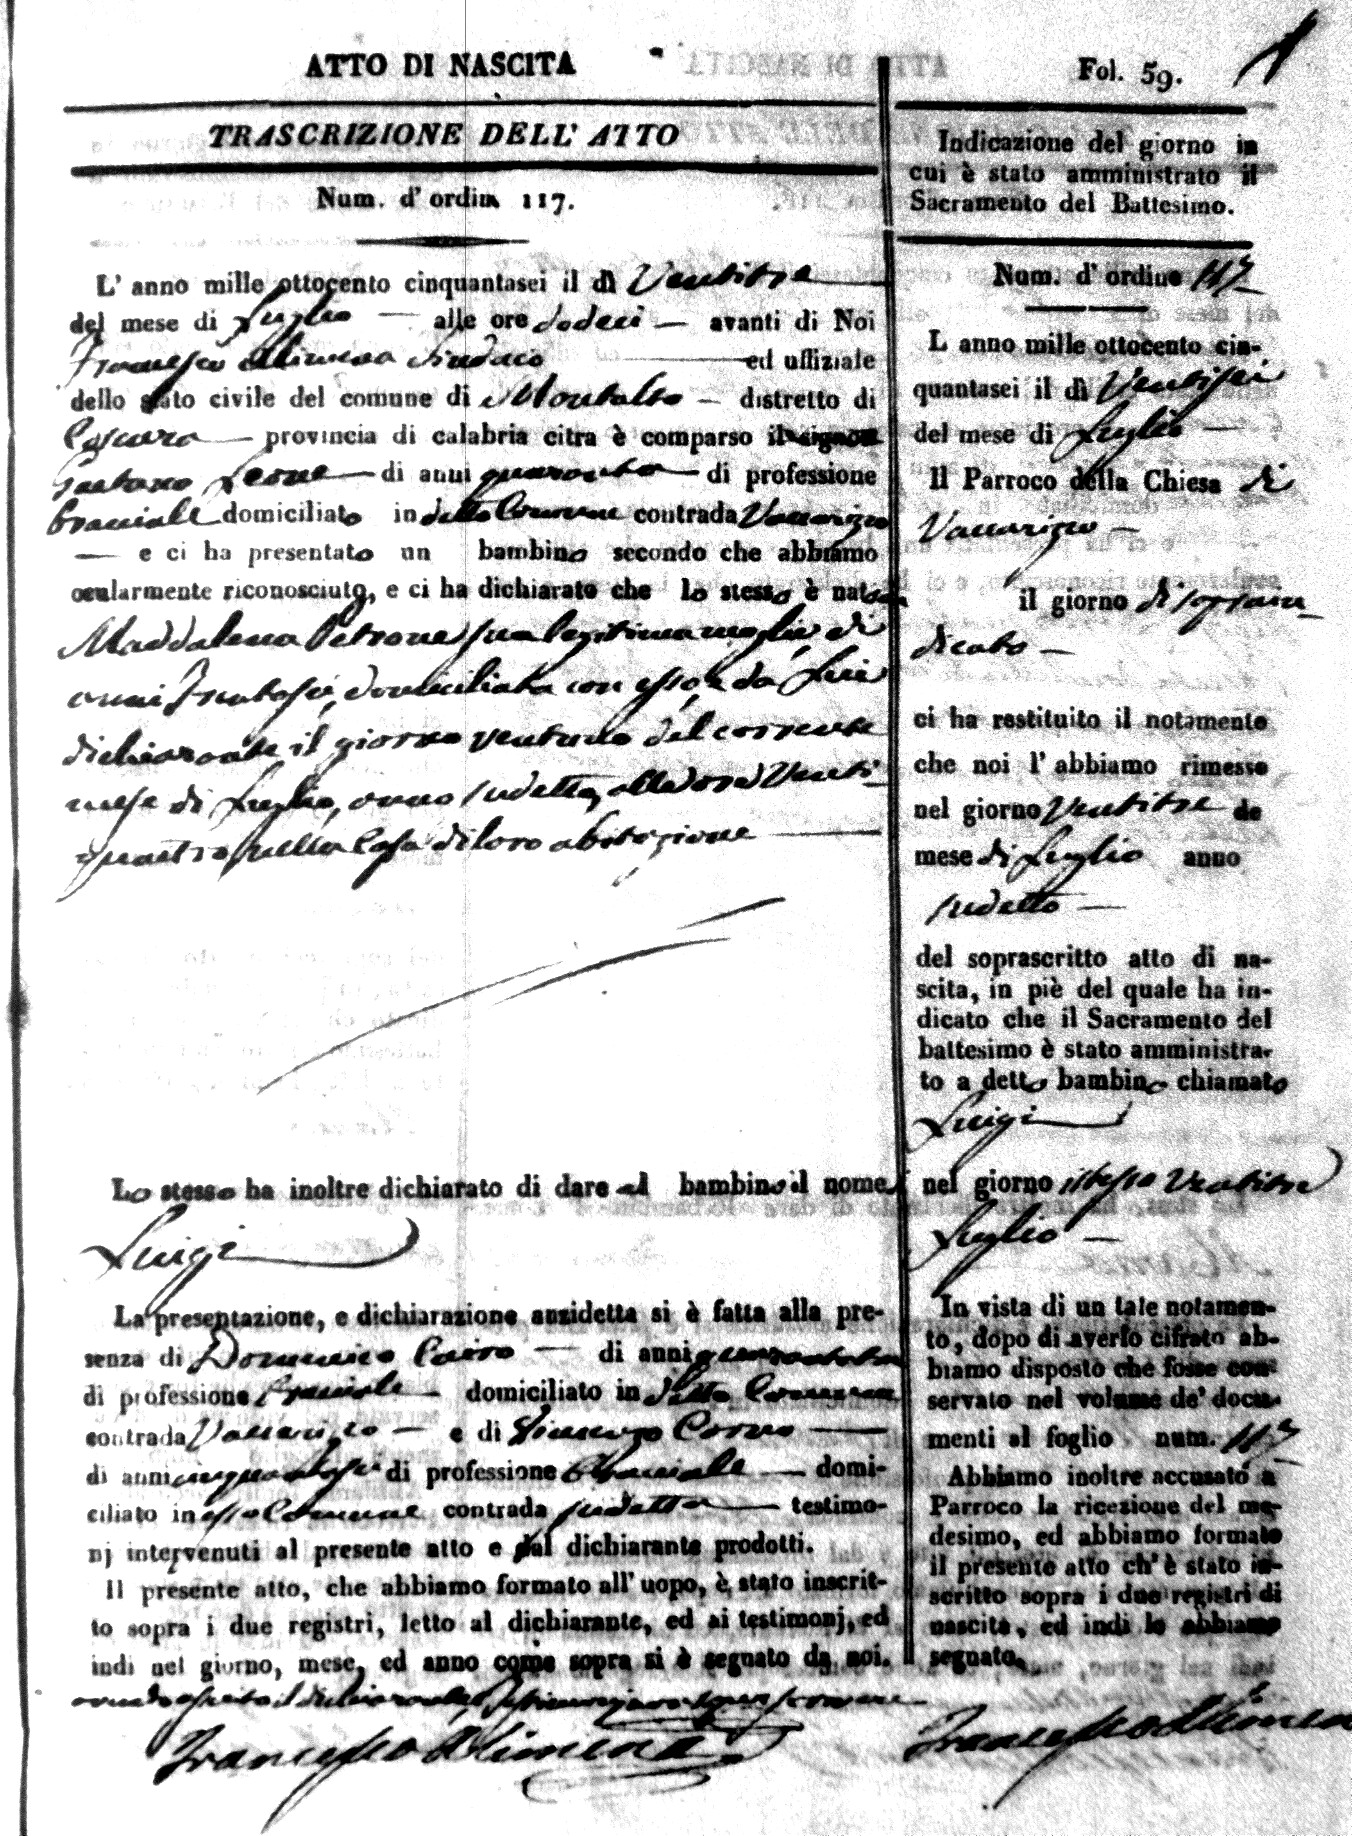 ATTO DI NASCITA
TRASCRIZIONE DELL' ATTO
Num. d' ordin 117.
L' anno mille ottocento cinquantasei il dì Ventitre
del mese di Luglio — alle ore dodeci — avanti di Noi
Francesco Alimena Sindaco ed uffiziale
dello stato civile del comune di Montalto — distretto di
Cosenza — provincia di calabria citra è comparso il signor
Gaetano Leone — di anni quaranta — di professione
bracciale domiciliato in detto Comune contrada Vaccarizzo
— e ci ha presentato un bambino secondo che abbiamo
ocularmente riconosciuto, e ci ha dichiarato che lo stesso è nato da
Maddalena Petrone sua legitima moglie di
anni trentasei, domiciliata con esso, e da lui
dichiarante il giorno ventuno del corrente
mese di Luglio, anno sudetto, alle ore Venti-
quattro nella Casa di loro abitazione
Lo stesso ha inoltre dichiarato di dare al bambino il nome
Luigi
La presentazione, e dichiarazione anzidetta si è fatta alla pre-
senza di Domenico Cairo — di anni
di professione bracciale domiciliato in detto Comune
contrada Vaccarizzo — e di Vincenzo
di anni cinquantasei di professione Bracciale — domi-
ciliato in esso Comune contrada sudetta — testimo-
nj intervenuti al presente atto e dal dichiarante prodotti.
Il presente atto, che abbiamo formato all' uopo, è stato inscrit-
to sopra i due registri, letto al dichiarante, ed ai testimonj, ed
indi nel giorno, mese, ed anno come sopra si è segnato da noi.
avendo asserito il dichiarante, e testimonj non saper scrivere
Francesco Alimena
Fol. 59.
Indicazione del giorno in
cui è stato amministrato il
Sacramento del Battesimo.
Num. d' ordine 117
L anno mille ottocento cin-
quantasei il dì Ventisei
del mese di Luglio —
Il Parroco della Chiesa di
Vaccarizzo —
il giorno di sopra in
dicato —
ci ha restituito il notamento
che noi l' abbiamo rimesso
nel giorno Ventitre de
mese di Luglio anno
sudetto —
del soprascritto atto di na-
scita, in piè del quale ha in-
dicato che il Sacramento del
battesimo è stato amministra-
to a detto bambino chiamato
Luigi
nel giorno istesso Ventitre
Luglio —
In vista di un tale notamen-
to, dopo di averlo cifrato ab-
biamo disposto che fosse con-
servato nel volume de' docu-
menti al foglio num. 117
Abbiamo inoltre accusato a
Parroco la ricezione del me-
desimo, ed abbiamo formato
il presente atto ch' è stato in-
scritto sopra i due registri di
nascita, ed indi lo abbiamo
segnato.
Francesco Alimena